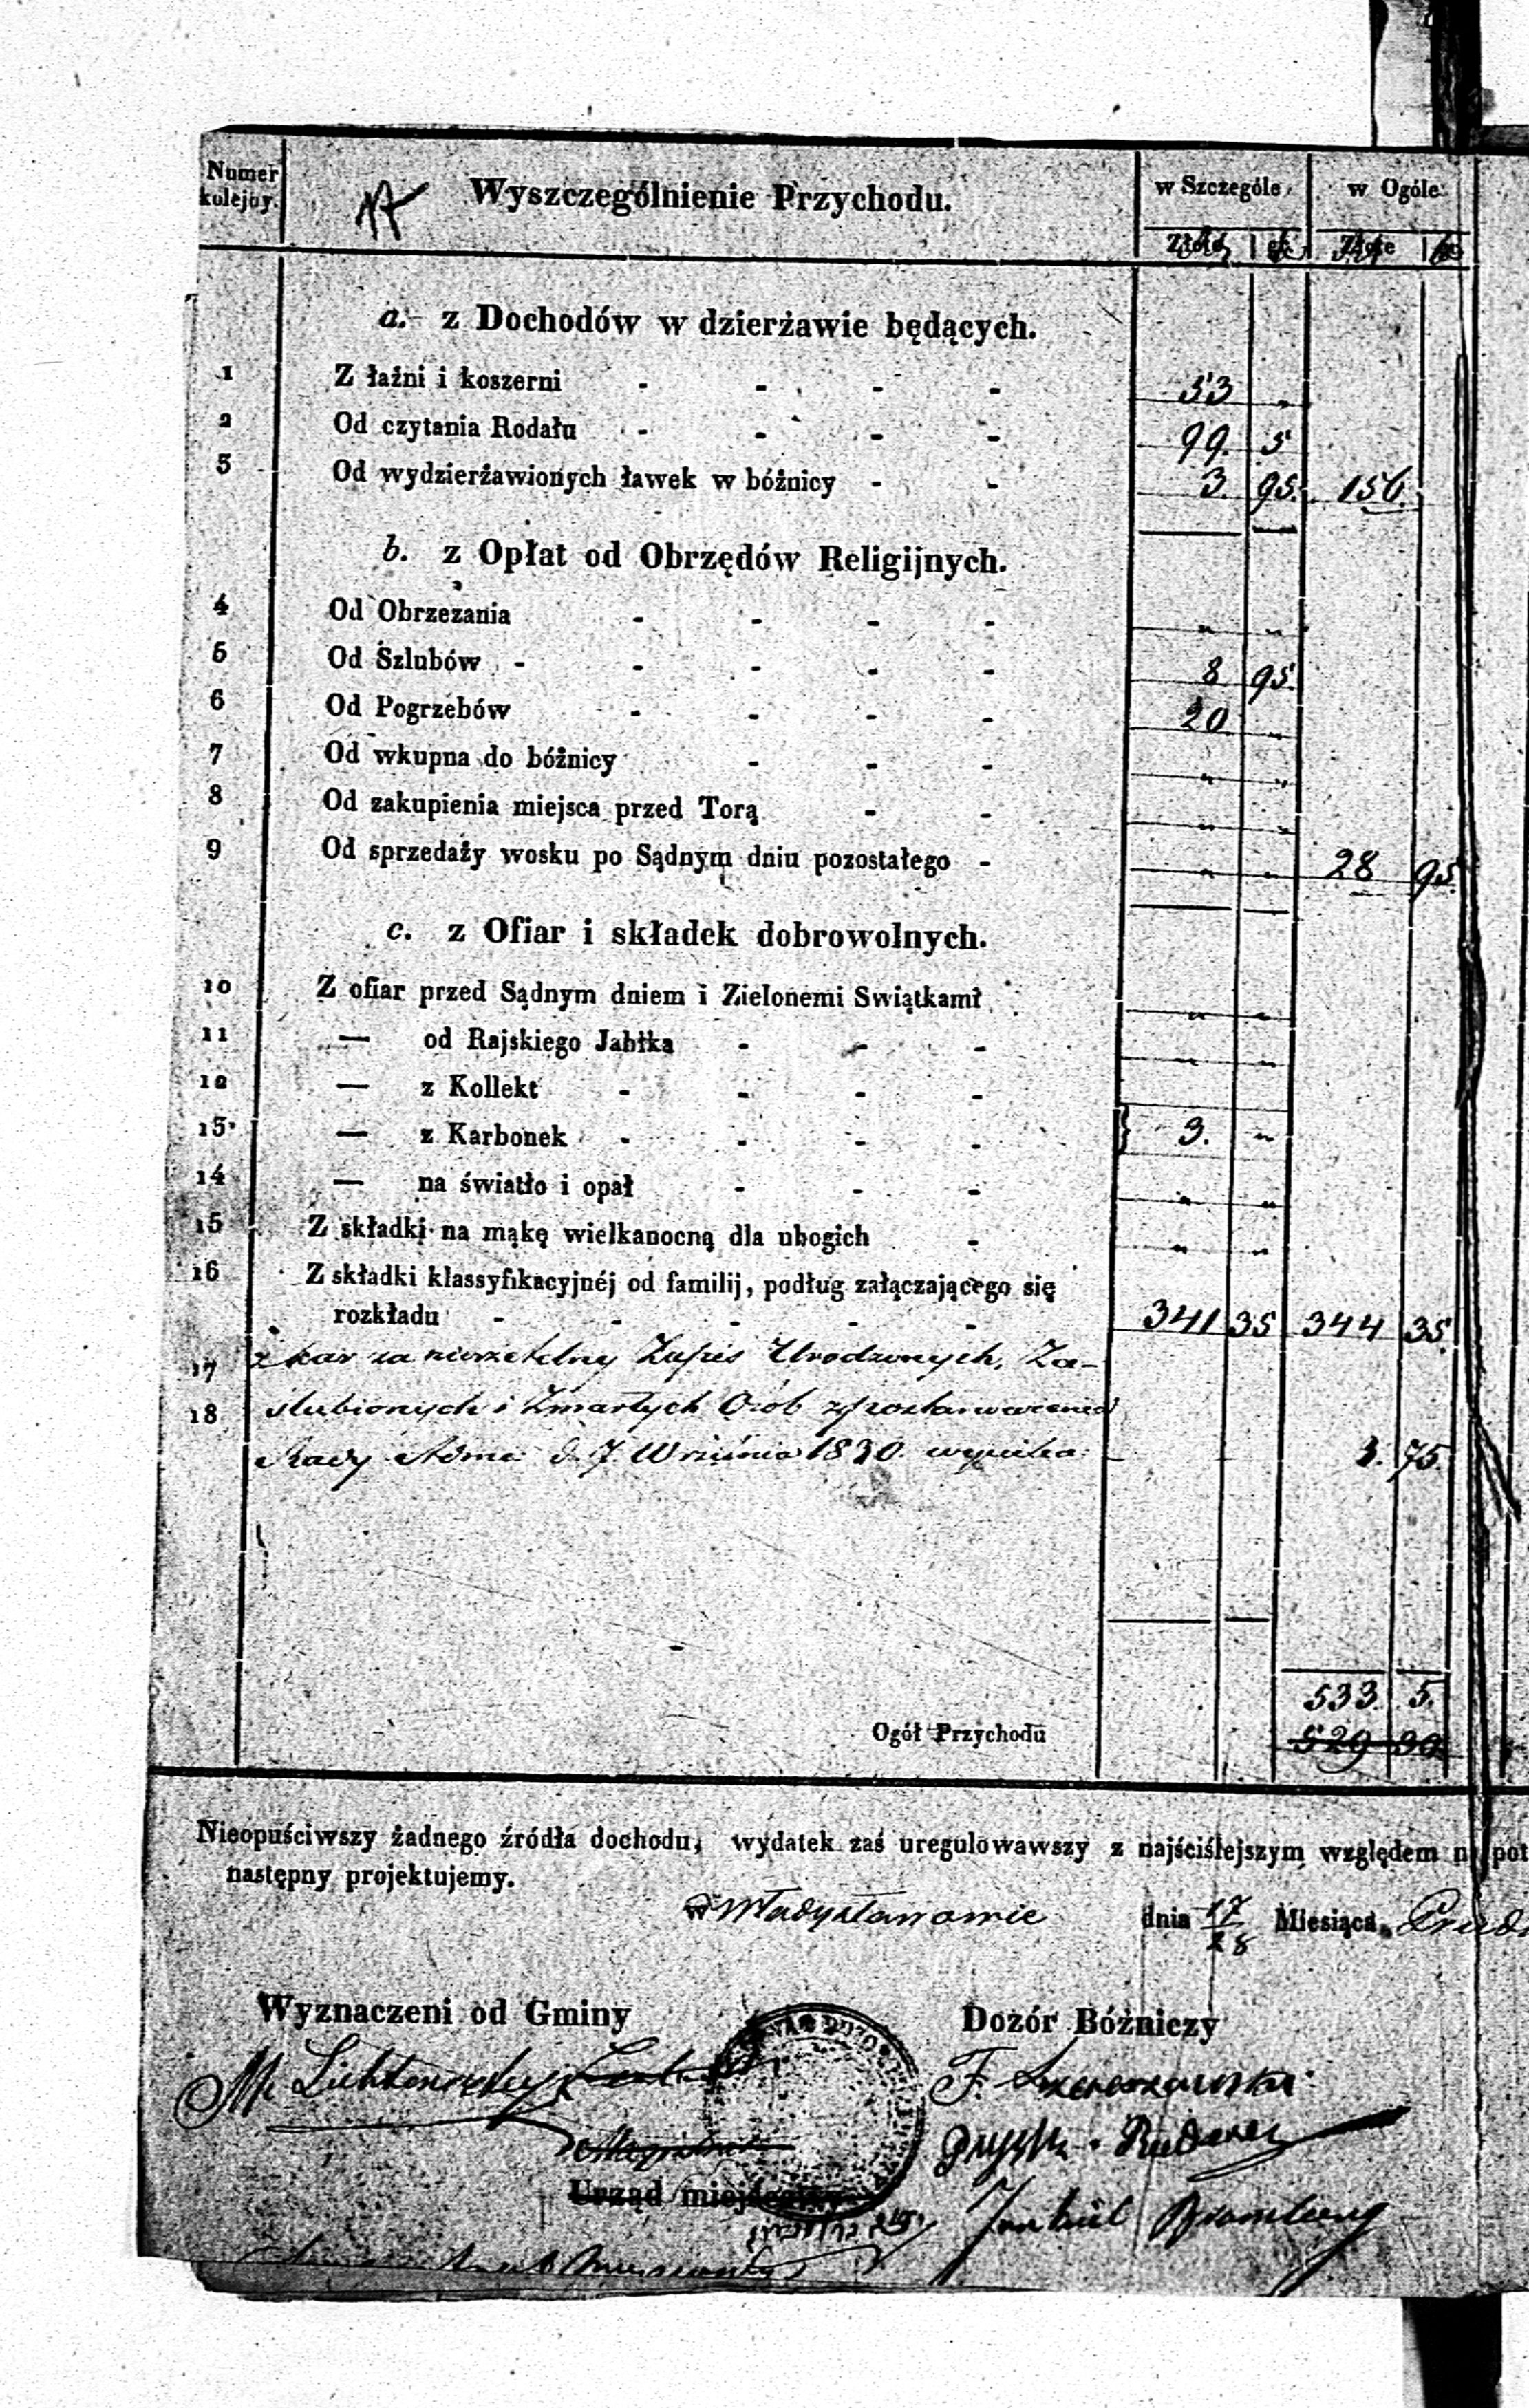 Numer kolejny. Wyszczególnienie Przychodu. w Szczególe w Ogóle
17
a. z Dochodów w dzierżawie będących.
1 Z łaźni i koszerni - - - - 53 „
2 Od czytania Rodału - - - - 99. 5
3 Od wydzierżawionych ławek w bóżnicy - - 3. 95. 156.
b. z Opłat od Obrzędów Religijnych.
4 Od Obrzezania - - - - „ „
5 Od Szlubów - - - - - 8 95.
6 Od Pogrzebów - - - - 20 „
7 Od wkupna do bóżnicy - - - „ „
8 Od zakupienia miejsca przed Torą - - „ „
9 Od sprzedaży wosku po Sądnym dniu pozostałego - „ „ 28 95.
c. z Ofiar i składek dobrowolnych.
10 Z ofiar przed Sądnym dniem i Zielonemi Swiątkami „ „
11 — od Rajskiego Jabłka - - - „ „
12 — z Kollekt - - - -
13 — z Karbonek - - - - } 3. „
14 — na światło i opał - - - „ „
15 Z składki na mąkę wielkanocną dla ubogich - „ „
16 Z składki klassyfikacyjnéj od familij, podług załączającego się
rozkładu - - - - - 341 35 344 35.
17 z kar za nierzetelny Zapis Urodzonych, Za-
18 ślubionych i Zmarłych Osób z postanowienia
Rady Adm: d. 7. Września 1830. wynika 3. 75.
533. 5.
Ogół Przychodu 529 30
Nieopuściwszy żadnego źródła dochodu, wydatek zaś uregulowawszy z najściślejszym względem na pot
następny projektujemy.
w Władysławowie dnia 17/28 Miesiąca
Wyznaczeni od Gminy Dozór Bóżniczy
F.
Urząd miejscowy
Bromberg